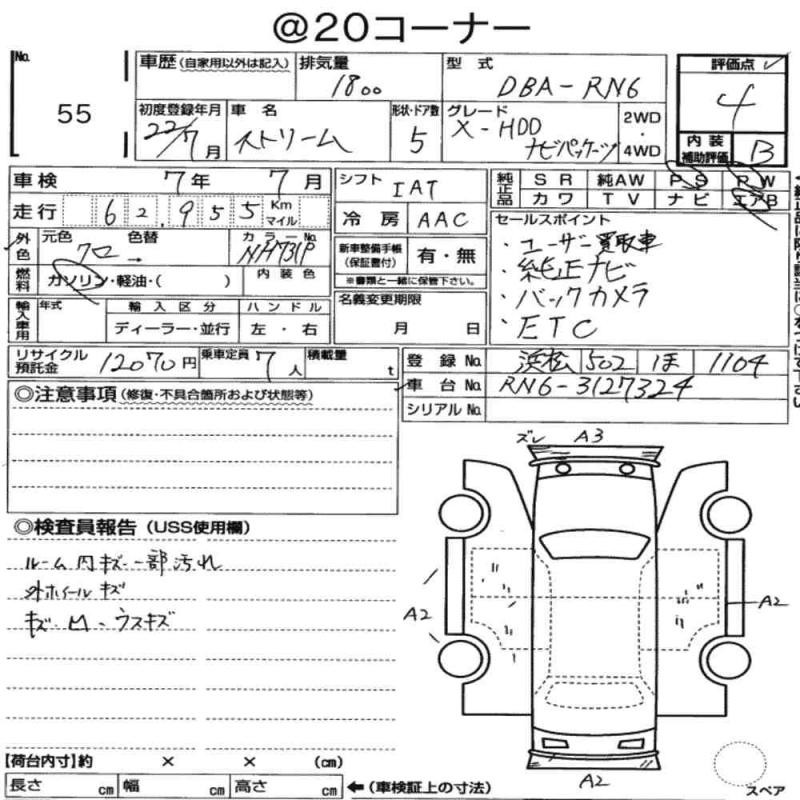 @20コーナー
No. 55
車歴 (自家用以外は記入)
排気量 1800
型式 DBA-RN6
評価点 4
初度登録年月 22/7月
車名 ストリーム
形状・ドア数 5
グレード X-HDD ナビパッケージ
2WD・4WD
内装補助評価 B
車検 7年 7月
シフト IAT
純正品 SR 純AW PS PW
カワ TV ナビ エアB
走行 62,955 Km マイル
冷房 AAC
セールスポイント
・ユーザー買取車
・純正ナビ
・バックカメラ
・ETC
外色 元色 クロ 色替 →
カラーNo. NH731P
新車整備手帳(保証書付) 有・無
※書類と一緒に保管下さい。
燃料 ガソリン・軽油・( )
内装色
名義変更期限 月 日
輸入車用 年式 輸入区分 ハンドル
ディーラー・並行 左・右
リサイクル預託金 12070円
乗車定員 7人
積載量 t
登録No. 浜松 502 ほ 1104
車台No. RN6-3127324
シリアルNo.
◎注意事項 (修復・不具合箇所および状態等)
ズレ A3
◎検査員報告 (USS使用欄)
ルーム内キズ一部汚れ
外ホイールキズ
キズ・凹・ウスキズ
A2
A2
A2
スペア
【荷台内寸】約 × × (cm)
長さ cm 幅 cm 高さ cm ←(車検証上の寸法)